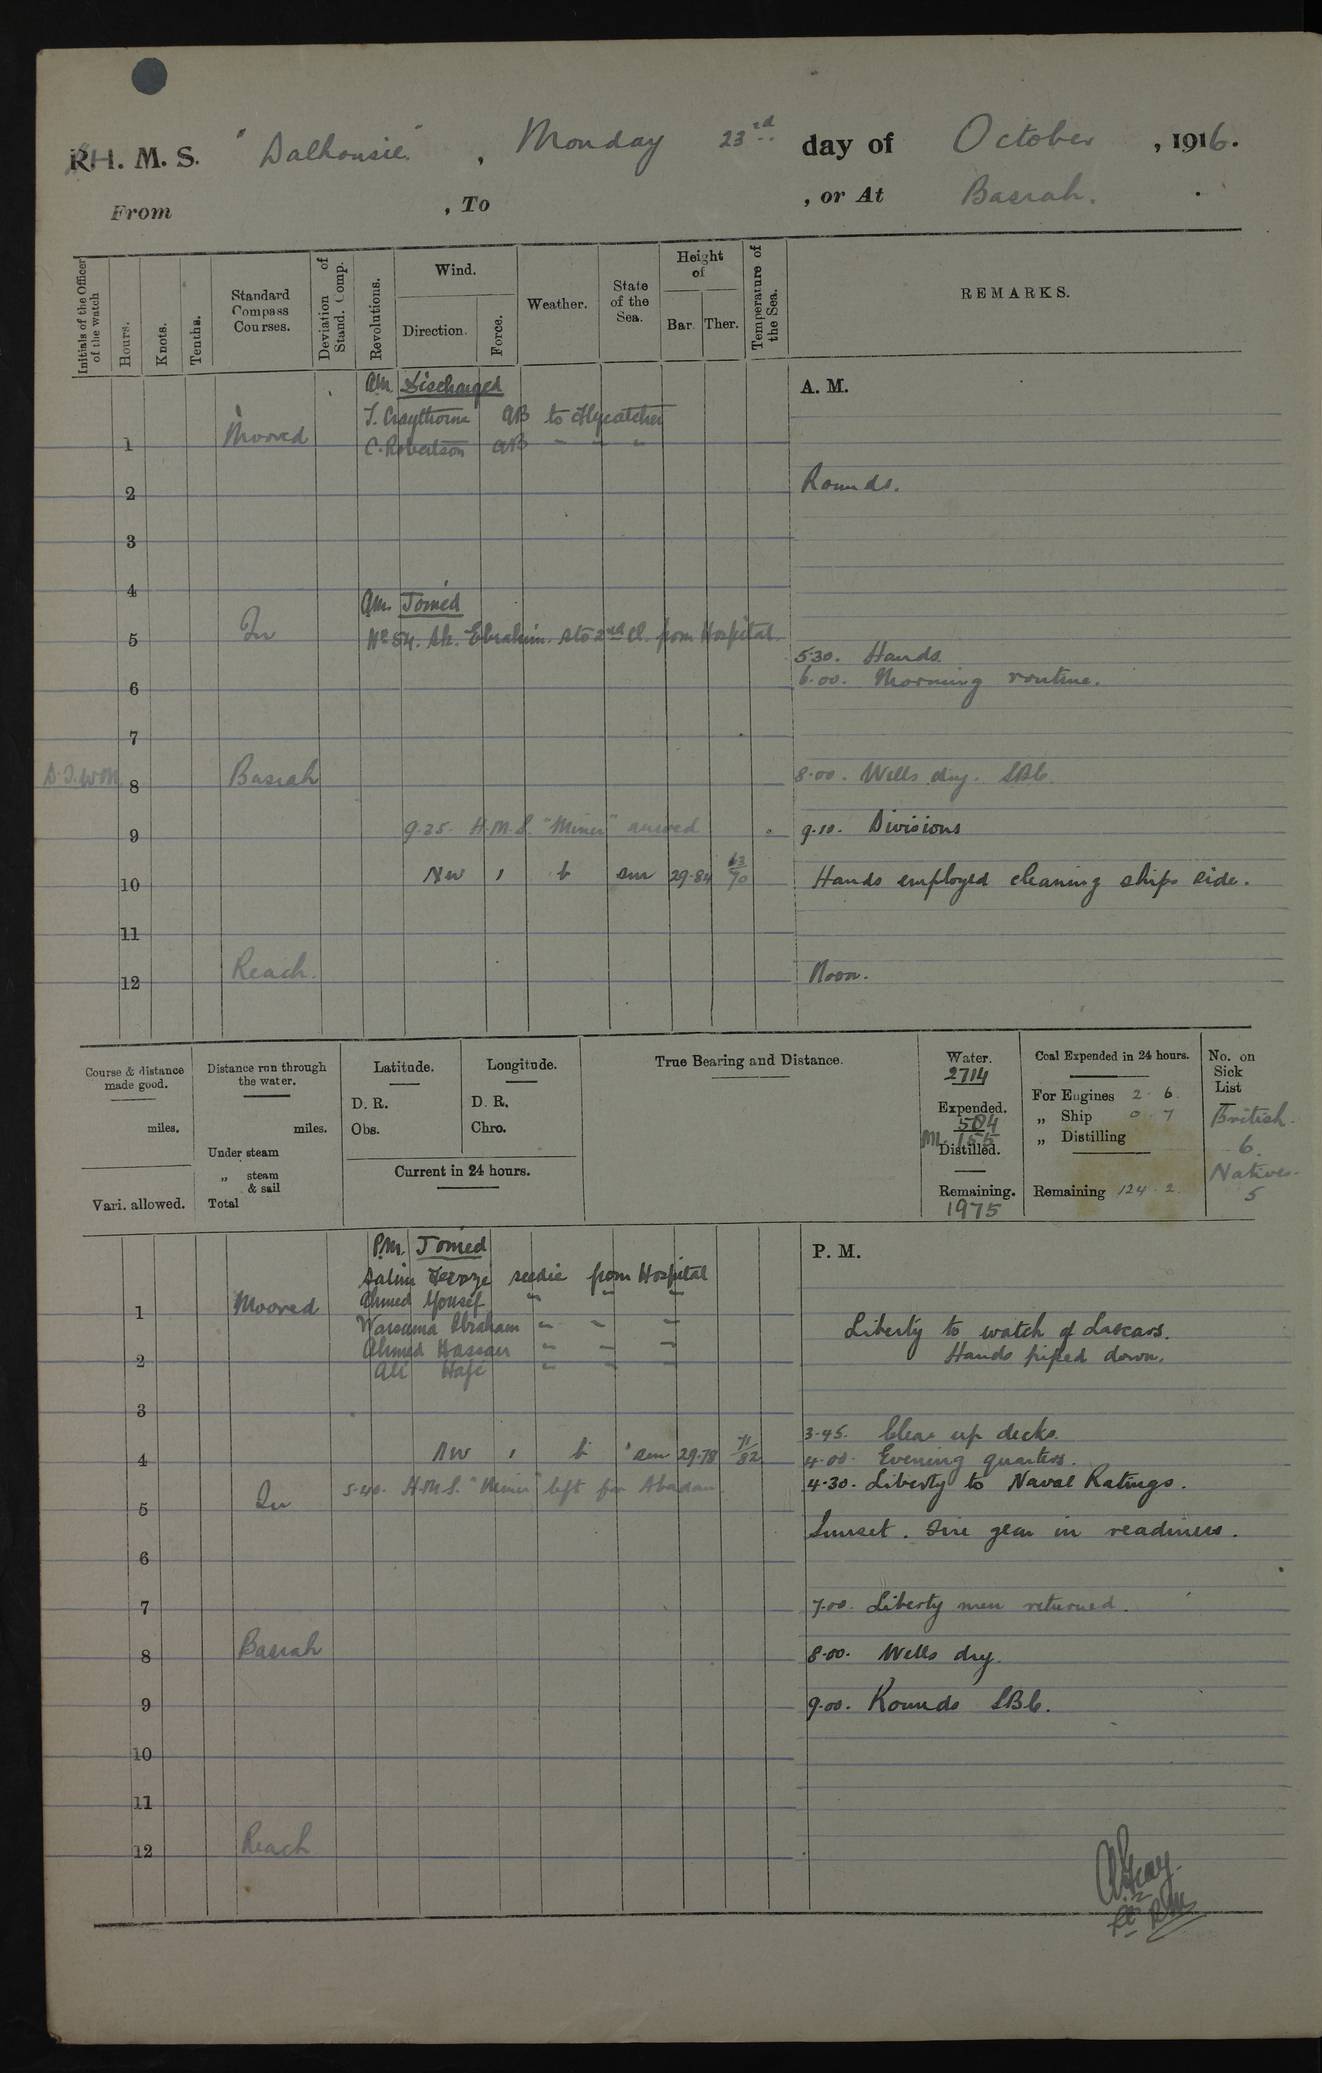 R.H. M. S. "Dalhousie", Monday 23rd day of October, 1916.
From , To , or At Basrah.
Initials of the Officer of the watch
Hours.
Knots.
Tenths.
Standard Compass Courses.
Deviation of Stand. Comp.
Revolutions.
Wind.
Direction.
Force.
Weather.
State of the Sea.
Height of
Bar. Ther.
Temperature of the Sea.
REMARKS.
A. M.
AM. Discharged
T. Craythorne AB to Flycatcher
1 Moored C. Robertson AB " " "
2 Rounds.
3
4
AM. Joined
5 In No 54. Sk. Ebrahim. Sto 2nd Cl. from Hospital.
5.30. Hands.
6 6.00. Morning routine.
7
8 Basrah 8.00. Wells dry. SBC.
9.25. H.M.S. "Miner" arrived
9 9.10. Divisions
10 NW 1 b sm 29.84 63/70 Hands employed cleaning ships side.
11
12 Reach. Noon.
Course & distance made good.
miles.
Vari. allowed.
Distance run through the water.
miles.
Under steam
„ steam & sail
Total
Latitude.
D. R.
Obs.
Longitude.
D. R.
Chro.
Current in 24 hours.
True Bearing and Distance.
Water.
2714
Expended.
584
155
Distilled.
Remaining.
1975
Coal Expended in 24 hours.
For Engines 2 . 6
„ Ship 0 . 7
„ Distilling
Remaining 124 . 2
No. on Sick List
British.
6.
Natives.
5
P. M.
P.M. Joined
Salim Feroze seedie from Hospital
1 Moored Ahmed Yousef " " "
Warsuma Ibraham " " "
Liberty to watch of Lascars.
Ahmed Hassan " " "
2 Ali Hafe " " "
Hands piped down.
3
3.45. Clear up decks.
4 NW 1 b sm 29.78 71/82 4.00. Evening quarters.
4.30. Liberty to Naval Ratings.
5.40. H.M.S. "Miner" left for Abadan
5 In
Sunset. Fire gear in readiness.
6
7 7.00. Liberty men returned.
8 Basrah 8.00. Wells dry.
9 9.00. Rounds SBC.
10
11
12 Reach